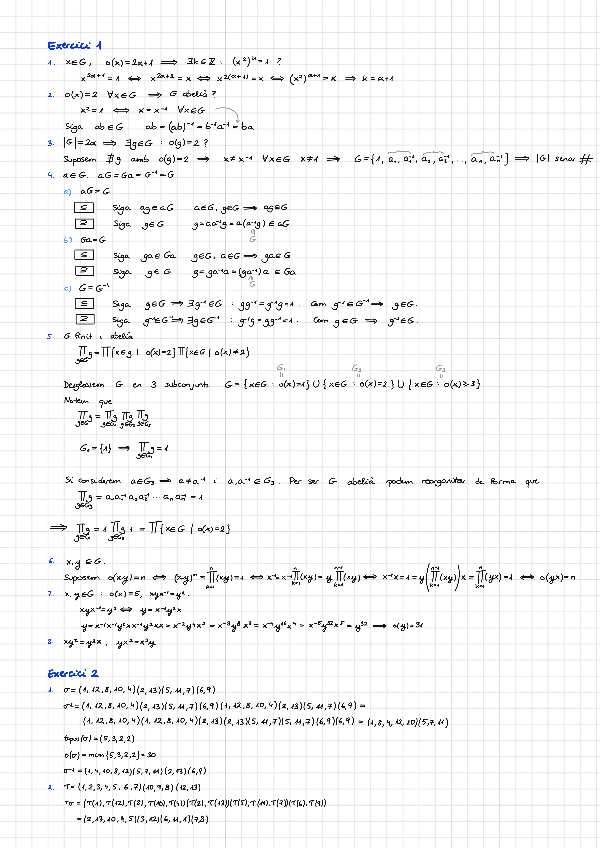 Exercici 1
1. x∈G, o(x)=2n+1 ⟹ ∃k∈ℤ : (x²)ᵏ=1 ?
x²ⁿ⁺¹=1 ⟺ x²ⁿ⁺²=x ⟺ x²⁽ⁿ⁺¹⁾=x ⟺ (x²)ⁿ⁺¹=x ⟹ k=n+1
2. o(x)=2 ∀x∈G ⟹ G abelià?
x²=1 ⟺ x=x⁻¹ ∀x∈G
Sigui ab∈G ab=(ab)⁻¹=b⁻¹a⁻¹=ba
3. |G|=2n ⟹ ∃g∈G : o(g)=2 ?
Suposem ∄g amb o(g)=2 ⟹ x≠x⁻¹ ∀x∈G x≠1 ⟹ G={1, a₁, a₁⁻¹, a₂, a₂⁻¹, ..., aₙ, aₙ⁻¹} ⟹ |G| senar #
4. a∈G. aG=Ga=G⁻¹=G
a) aG=G
⊆ Sigui ag∈aG a∈G, g∈G ⟹ ag∈G
⊇ Sigui g∈G g=aa⁻¹g=a(a⁻¹g)∈aG
G
b) Ga=G
⊆ Sigui ga∈Ga g∈G, a∈G ⟹ ga∈G
⊇ Sigui g∈G g=ga⁻¹a=(ga⁻¹)a∈Ga
G
c) G=G⁻¹
⊆ Sigui g∈G ⟹ ∃g⁻¹∈G : gg⁻¹=g⁻¹g=1. Com g⁻¹∈G⁻¹ ⟹ g∈G.
⊇ Sigui g⁻¹∈G⁻¹ ⟹ ∃g∈G⁻¹ : g⁻¹g=gg⁻¹=1. Com g∈G ⟹ g⁻¹∈G.
5. G finit i abelià
∏g∈G g=∏{x∈g | o(x)=2}∏{x∈G | o(x)≠2}
G₁ G₂ G₃
Desglossem G en 3 subconjunts G={x∈G : o(x)=1}∪{x∈G : o(x)=2}∪{x∈G : o(x)≥3}
Notem que
∏g∈G g=∏g∈G₁ g ∏g∈G₂ g ∏g∈G₃ g
G₁={1} ⟹ ∏g∈G₁ g=1
Si considerem a∈G₃ ⟹ a≠a⁻¹ i a,a⁻¹∈G₃. Per ser G abelià podem reorganitzar de forma que
∏g∈G₃ g=a₁a₁⁻¹a₂a₂⁻¹⋯aₙaₙ⁻¹=1
⟹ ∏g∈G g=1 ∏g∈G₂ g 1=∏{x∈G | o(x)=2}
6. x,y∈G.
Suposem o(xy)=n ⟺ (xy)ⁿ=∏(xy)=1 ⟺ x⁻¹=x⁻¹∏(xy)=y∏(xy) ⟺ x⁻¹x=1=y(∏(xy))x=∏(yx)=1 ⟺ o(yx)=n
7. x,y∈G : o(x)=5, xyx⁻¹=y².
xyx⁻¹=y² ⟺ y=x⁻¹y²x
y=x⁻¹(x⁻¹y²xx⁻¹y²x)x=x⁻²y⁴x²=x⁻³y⁸x³=x⁻⁴y¹⁶x⁴=x⁻⁵y³²x⁵=y³² ⟹ o(y)=31
8. xy²=y³x, yx²=x³y
Exercici 2
1. σ=(1,12,8,10,4)(2,13)(5,11,7)(6,9)
σ²=(1,12,8,10,4)(2,13)(5,11,7)(6,9)(1,12,8,10,4)(2,13)(5,11,7)(6,9)=
(1,12,8,10,4)(1,12,8,10,4)(2,13)(2,13)(5,11,7)(5,11,7)(6,9)(6,9)=(1,8,4,12,10)(5,7,11)
tipus(σ)=(5,3,2,2)
o(σ)=mcm{5,3,2,2}=30
σ⁻¹=(1,4,10,8,12)(5,7,11)(2,13)(6,9)
2. τ=(1,2,3,4,5,6,7)(10,9,8)(12,13)
τσ=(τ(1),τ(12),τ(8),τ(10),τ(4))(τ(2),τ(13))(τ(5),τ(11),τ(7))(τ(6),τ(9))
=(2,13,10,9,5)(3,12)(6,11,1)(7,8)